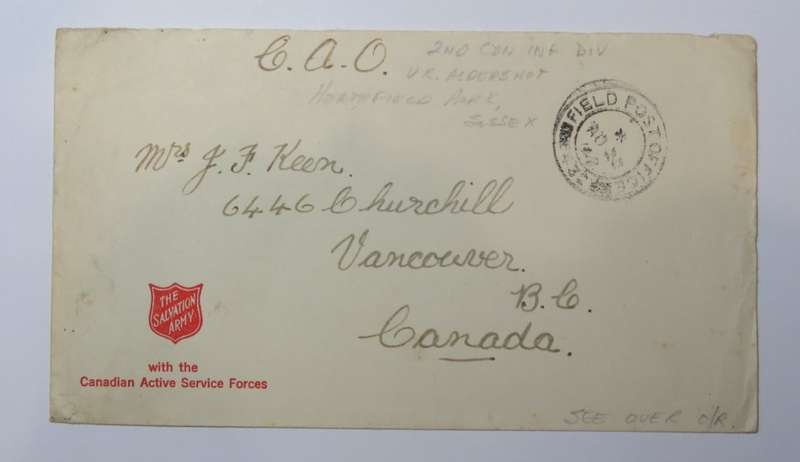 C. A. O.
2ND CDN INF DIV
NR. ALDERSHOT
HEATHFIELD PARK,
SUSSEX
FIELD POST OFFICE
Mrs J. F. Keen.
6446 Churchill
Vancouver.
B.C.
Canada.
THE
SALVATION
ARMY
with the
Canadian Active Service Forces
SEE OVER O/R.